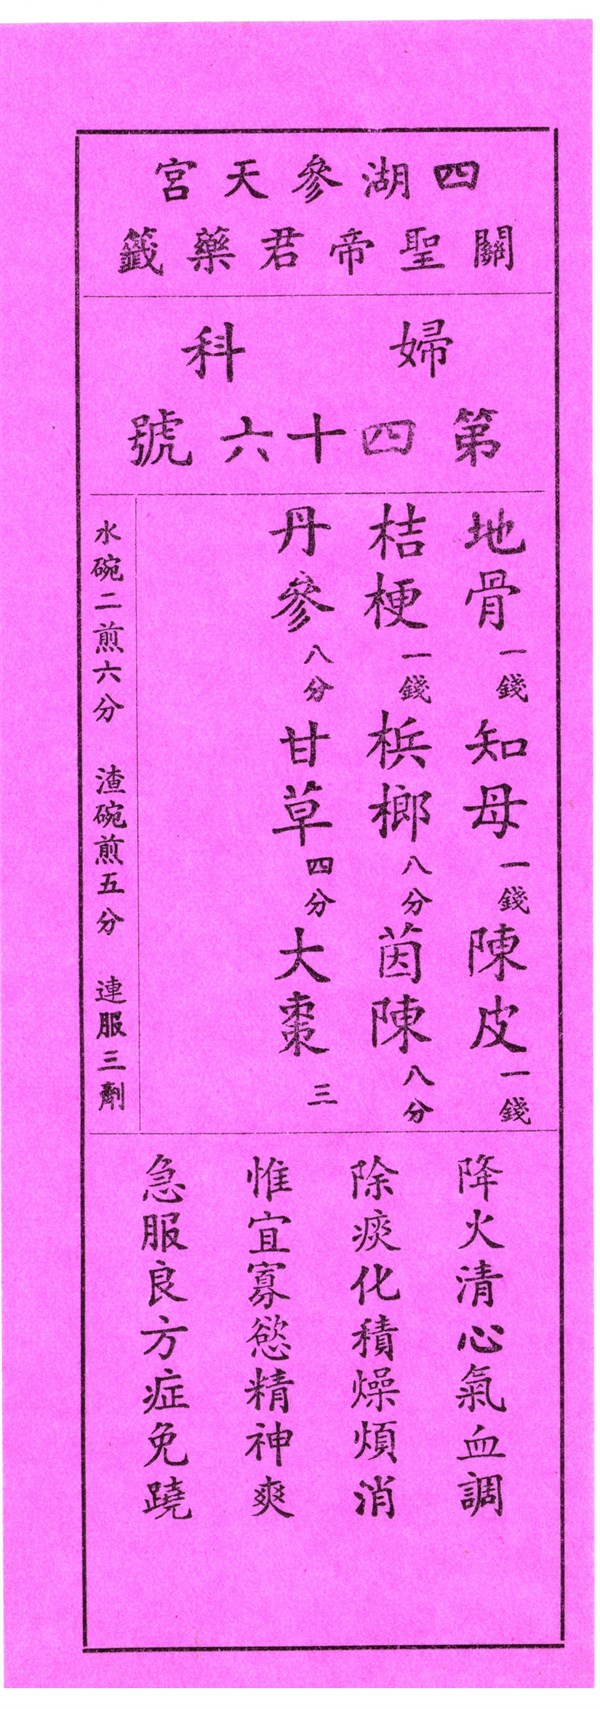 四湖參天宮
關聖帝君藥籤
婦科
第四十六號
地骨一錢 知母一錢 陳皮一錢
桔梗一錢 梹榔八分 茵陳八分
丹參八分 甘草四分 大棗三
水碗二煎六分 渣碗煎五分 連服三劑
降火清心氣血調
除痰化積燥煩消
惟宜寡慾精神爽
急服良方症免蹺